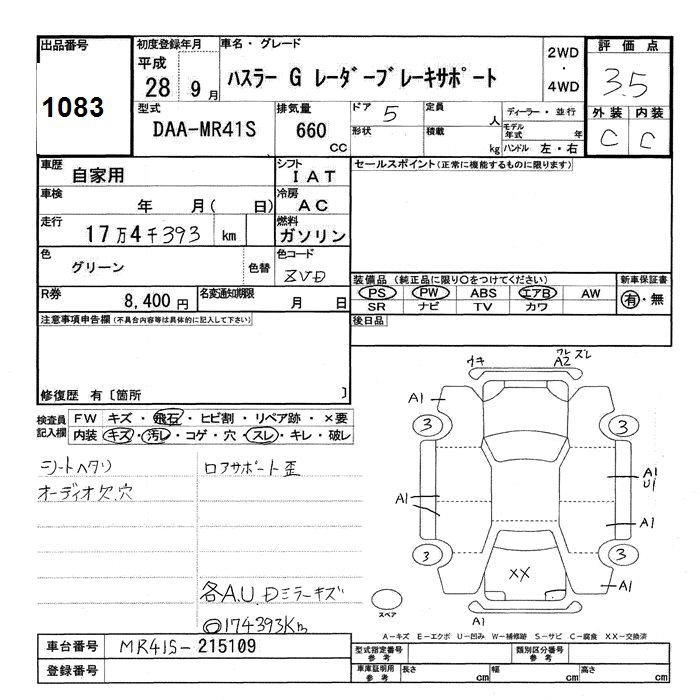 出品番号
1083
初度登録年月
平成
28 9月
車名・グレード
ハスラー G レーダーブレーキサポート
2WD
・
4WD
評価点
3.5
型式
DAA-MR41S
排気量
660
CC
ドア 5
形状
定員
人
積載
kg
ディーラー・並行
モデル年式 年
ハンドル 左・右
外装 内装
C C
車歴
自家用
シフト
IAT
車検
年 月( 日)
冷房
AC
走行
17万4千393 km
燃料
ガソリン
色
グリーン
色替
色コード
ZVD
R券
8,400円
名変通知期限
月 日
セールスポイント(正常に機能するものに限ります)
装備品 (純正品に限り○をつけてください)
PS PW ABS エアB AW
SR ナビ TV カワ
新車保証書
有・無
後日品
注意事項申告欄(不具合内容等は具体的に記入して下さい)
修復歴 有〔箇所 〕
検査員記入欄
FW キズ・飛石・ヒビ割・リペア跡・×要
内装 キズ・汚レ・コゲ・穴・スレ・キレ・破レ
シートヘタリ
オーディオ欠.穴
ロアサポート歪
各A.U.Dミラーキズ
◎174393Km
ウキ
ワレ ズレ
A2
A1
3
3
A1
A1
U1
A1
3
3
XX
A1
A1
スペア
A-キズ E-エクボ U-凹み W-補修跡 S-サビ C-腐食 XX-交換済
車台番号
MR41S-215109
登録番号
型式指定番号
参考
類別区分番号
参考
車庫証明用
参考
長さ cm
幅 cm
高さ cm